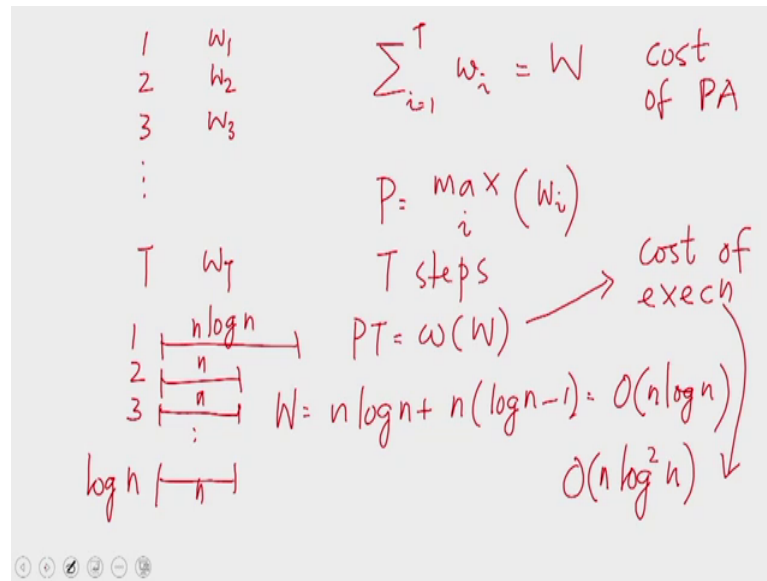 1 W₁
2 W₂
3 W₃
⋮
T W_T
∑_{i=1}^{T} w_i = W cost of PA
P = max_i (W_i)
T steps
PT = ω(W) → cost of execn
1 n log n
2 n
3 n
⋮
log n n
W = n log n + n(log n - 1) = O(n log n)
O(n log² n)